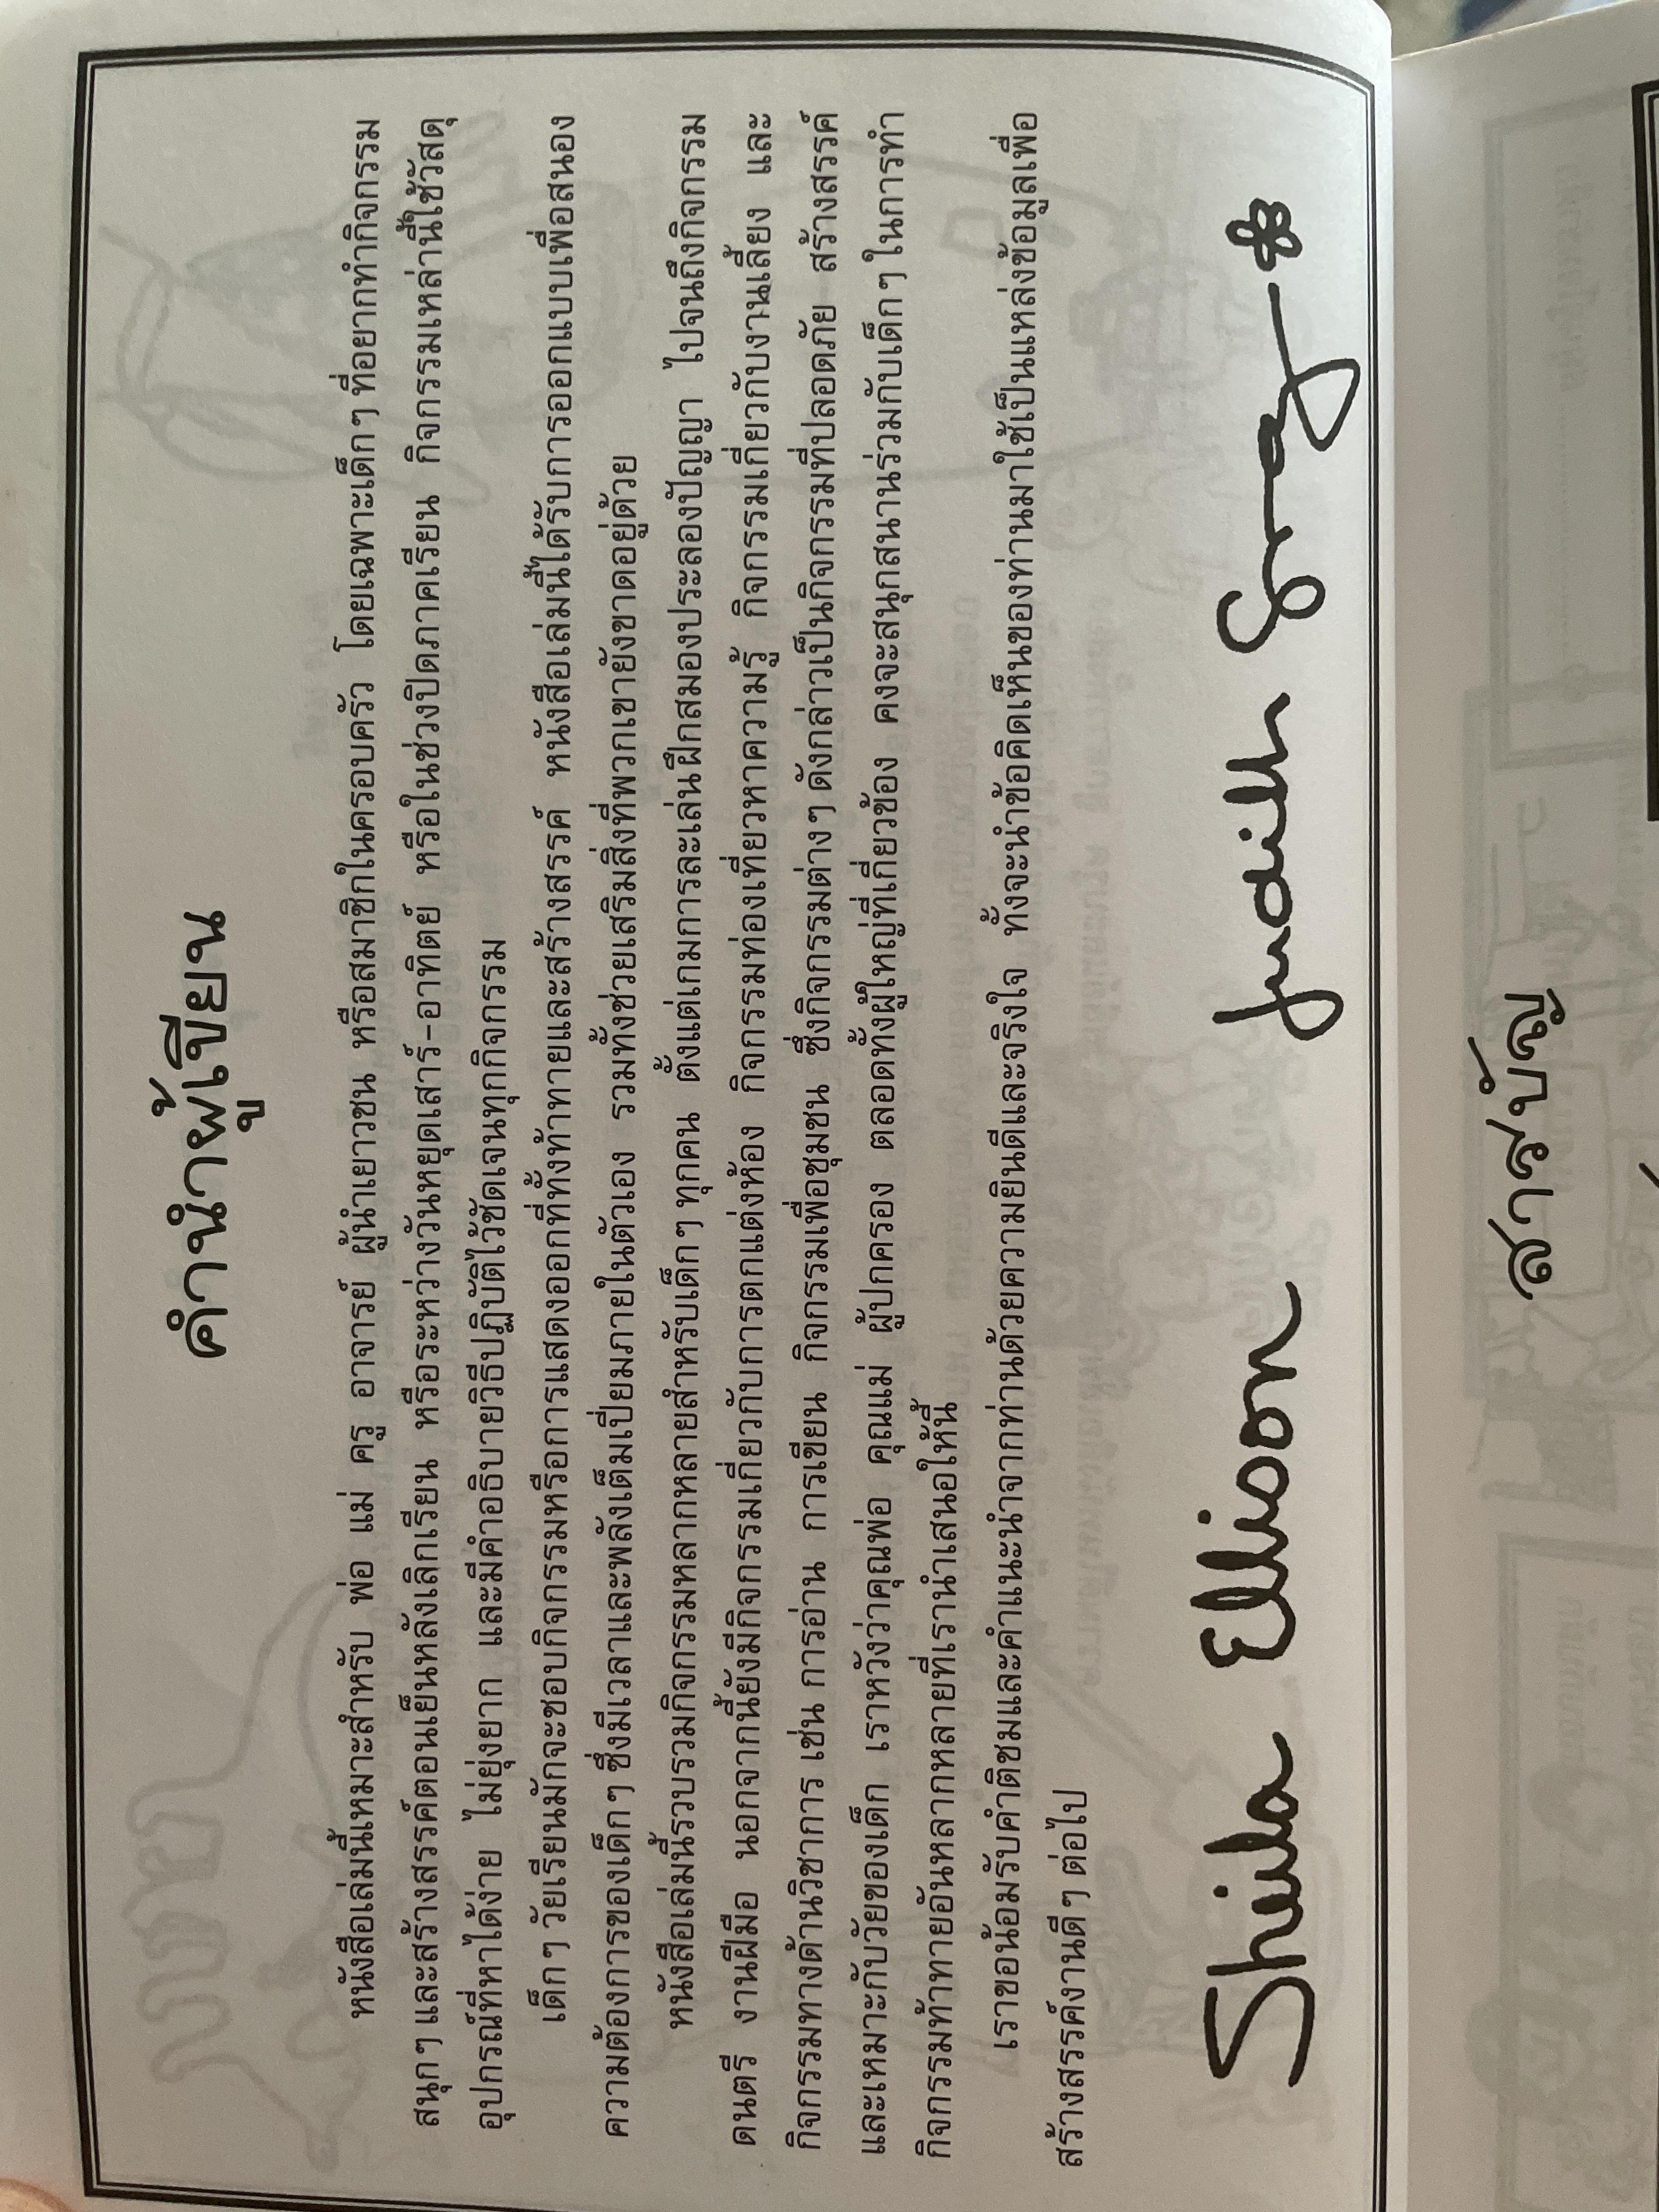 คำนำผู้เขียน
หนังสือเล่มนี้เหมาะสำหรับ พ่อ แม่ ครู อาจารย์ ผู้นำเยาวชน หรือสมาชิกในครอบครัว โดยเฉพาะเด็กๆ ที่อยากทำกิจกรรม
สนุกๆ และสร้างสรรค์ตอนเย็นหลังเลิกเรียน หรือระหว่างวันหยุดเสาร์-อาทิตย์ หรือในช่วงปิดภาคเรียน กิจกรรมเหล่านี้ใช้วัสดุ
อุปกรณ์ที่หาได้ง่าย ไม่ยุ่งยาก และมีคำอธิบายวิธีปฏิบัติไว้ชัดเจนทุกกิจกรรม
เด็กๆ วัยเรียนมักจะชอบกิจกรรมหรือการแสดงออกที่ทั้งท้าทายและสร้างสรรค์ หนังสือเล่มนี้ได้รับการออกแบบเพื่อสนอง
ความต้องการของเด็กๆ ซึ่งมีเวลาและพลังเต็มเปี่ยมภายในตัวเอง รวมทั้งช่วยเสริมสิ่งที่พวกเขายังขาดอยู่ด้วย
หนังสือเล่มนี้รวบรวมกิจกรรมหลากหลายสำหรับเด็กๆ ทุกคน ตั้งแต่เกมการละเล่นฝึกสมองประลองปัญญา ไปจนถึงกิจกรรม
ดนตรี งานฝีมือ นอกจากนี้ยังมีกิจกรรมเกี่ยวกับการตกแต่งห้อง กิจกรรมท่องเที่ยวหาความรู้ กิจกรรมเกี่ยวกับงานเลี้ยง และ
กิจกรรมทางด้านวิชาการ เช่น การอ่าน การเขียน กิจกรรมเพื่อชุมชน ซึ่งกิจกรรมต่างๆ ดังกล่าวเป็นกิจกรรมที่ปลอดภัย สร้างสรรค์
และเหมาะกับวัยของเด็ก เราหวังว่าคุณพ่อ คุณแม่ ผู้ปกครอง ตลอดทั้งผู้ใหญ่ที่เกี่ยวข้อง คงจะสนุกสนานร่วมกับเด็กๆ ในการทำ
กิจกรรมท้าทายอันหลากหลายที่เรานำเสนอให้นี้
เราขอน้อมรับคำติชมและคำแนะนำจากท่านด้วยความยินดีและจริงใจ ทั้งจะนำข้อคิดเห็นของท่านมาใช้เป็นแหล่งข้อมูลเพื่อ
สร้างสรรค์งานดีๆ ต่อไป
Sheila Ellison Judith Gray
สารบัญ